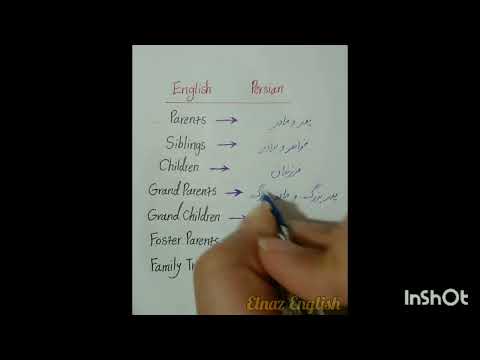 English Persian
Parents → پدر و مادر
Siblings → خواهر و برادر
Children → فرزندان
Grand Parents → پدربزرگ و مادربزرگ
Grand Children →
Foster Parents
Family
Elnaz English
InShOt